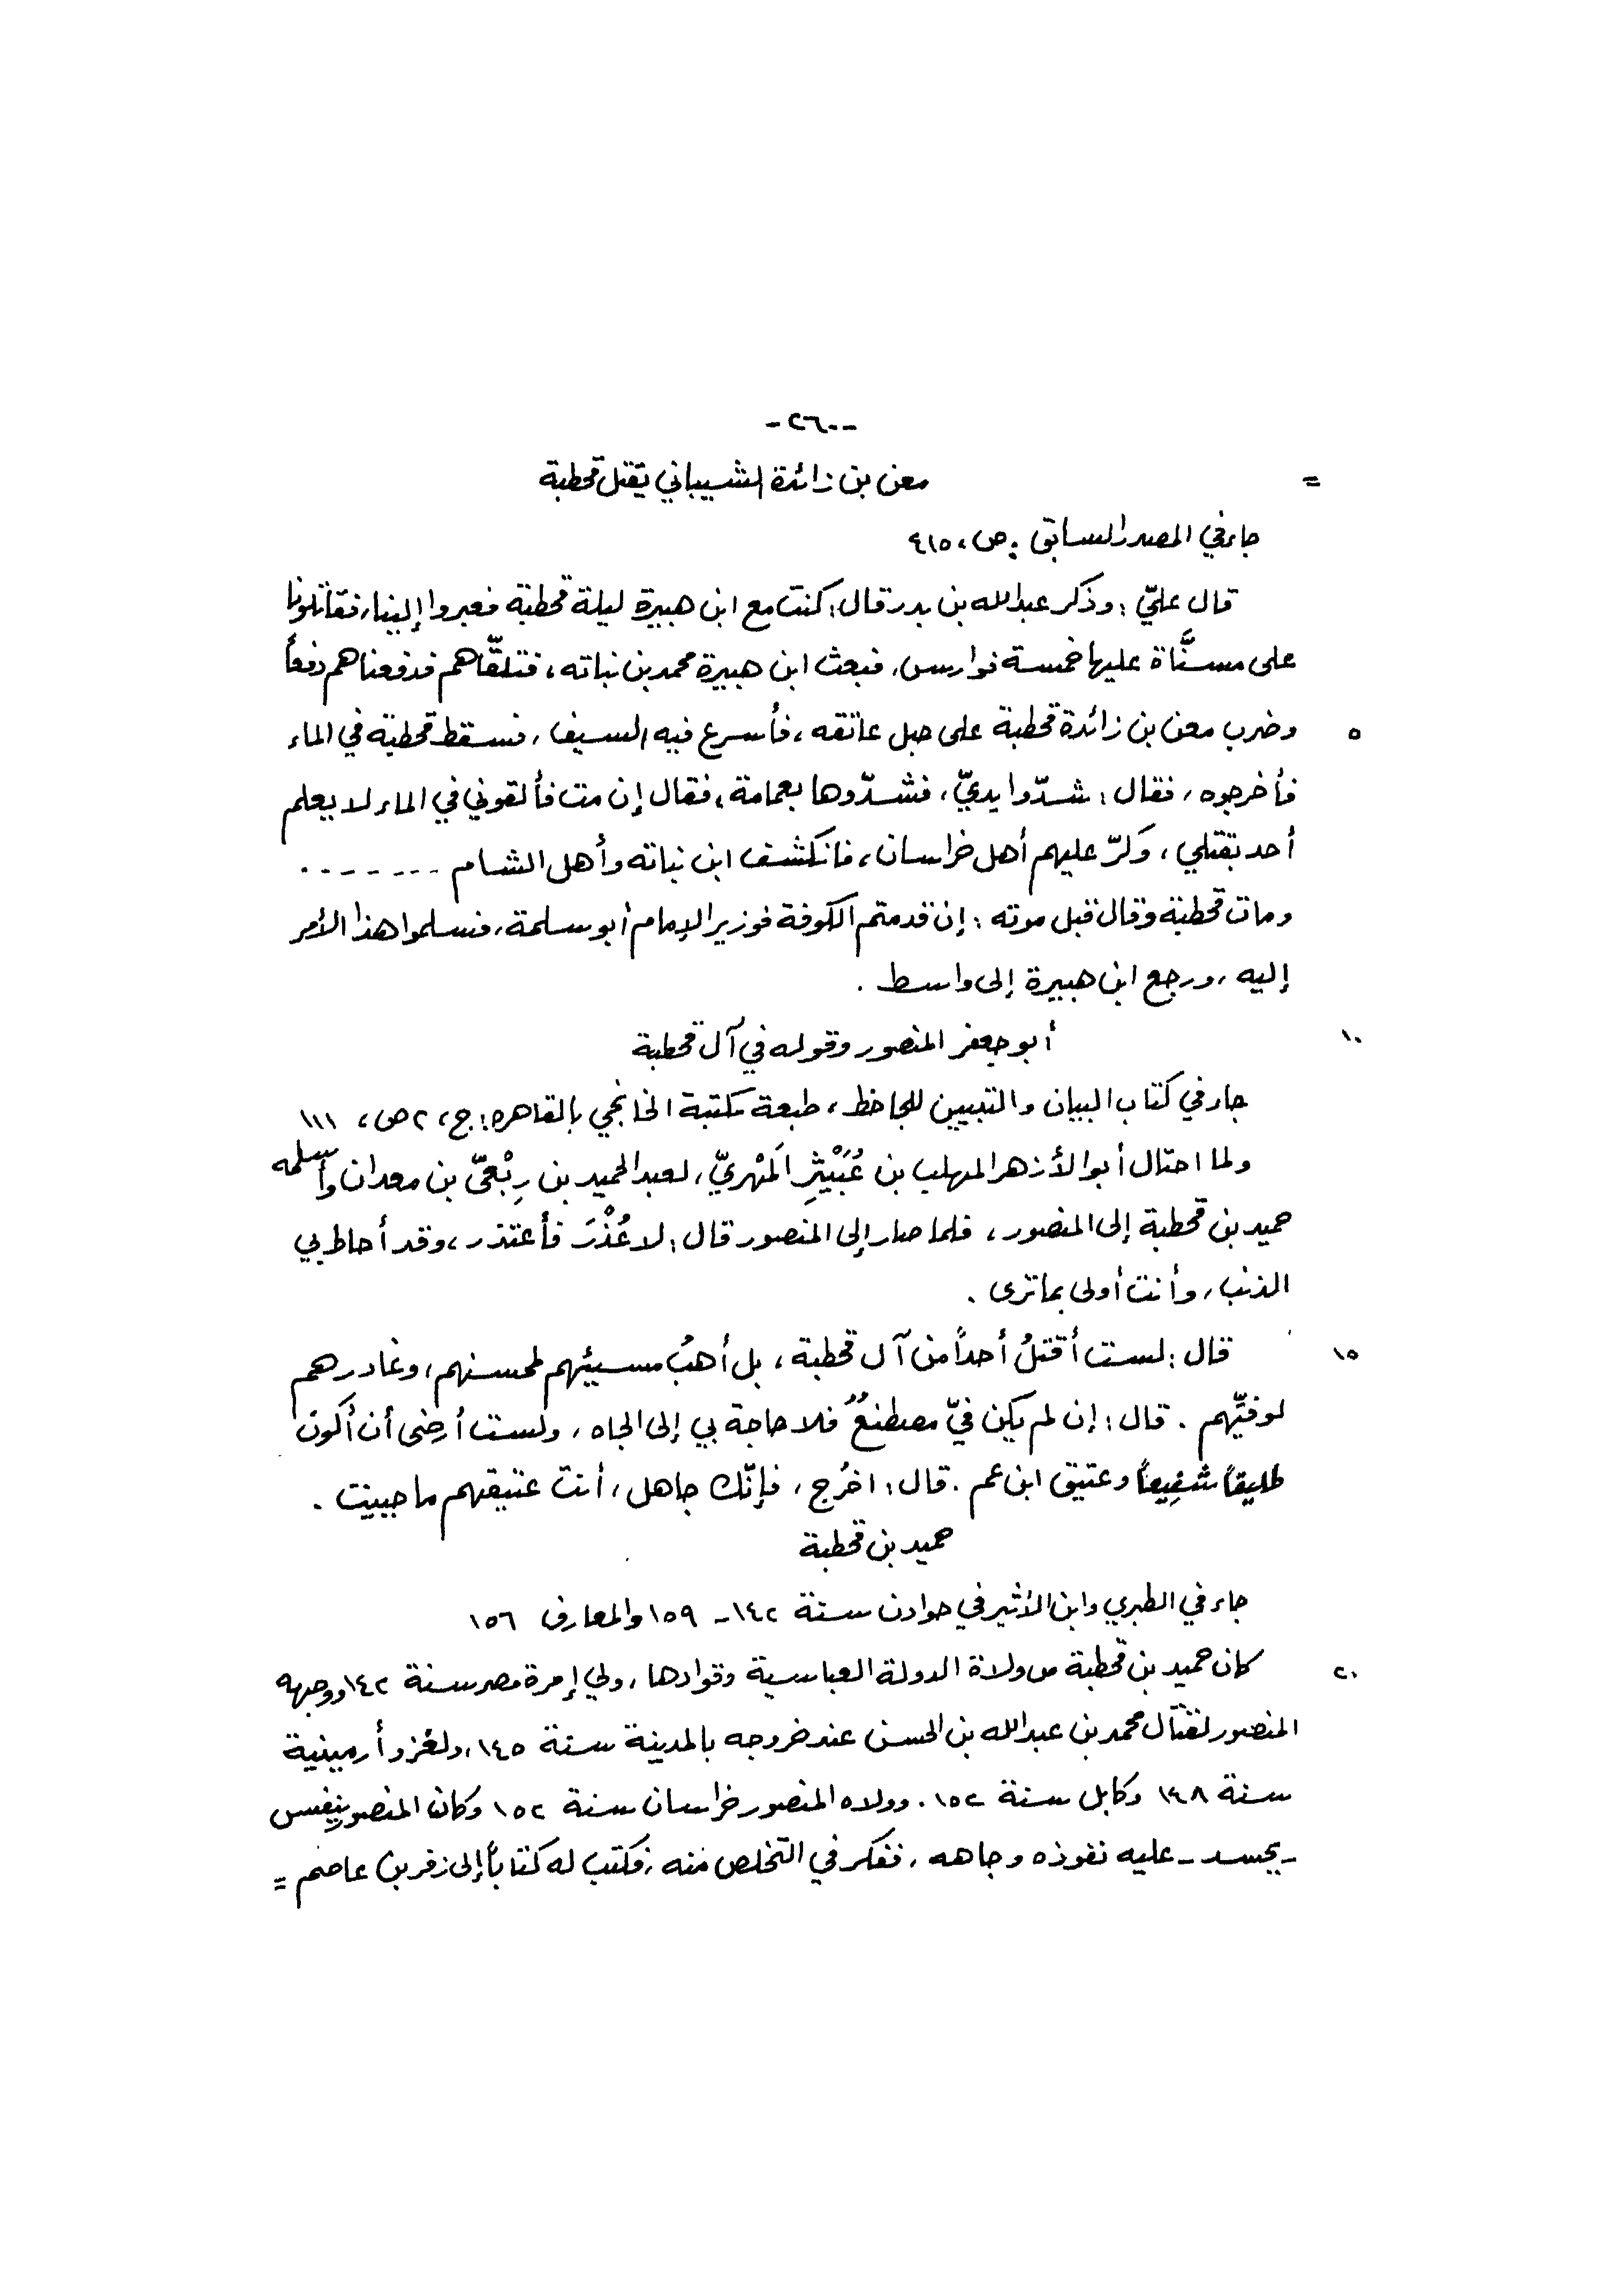 -٢٦٠-
= معن بن زائدة الشيباني يقتل قحطبة
جاء في المصدر السابق: ص، ٤١٥
قال عليّ: وذكر عبدالله بن بدر قال: كنت مع ابن هبيرة ليلة قحطبة فعبروا إلينا، فقاتلونا
على مسنَّاة عليها خمسة فوارس، فبعث ابن هبيرة محمد بن نباته، فتلقّاهم فدفعناهم دفعاً
٥ وضرب معن بن زائدة قحطبة على حبل عاتقه، فأسرع فيه السيف، فسقط قحطبة في الماء
فأخرجوه، فقال: شدّوا يديّ، فشدّوها بعمامة، فقال إن مت فألقوني في الماء لا يعلم
أحد بقتلي، وكرّ عليهم أهل خراسان، فانكشف ابن نباته وأهل الشام -------
ومات قحطبة وقال قبل موته: إن قدمتم الكوفة فوزير الإمام أبو سلمة، فسلموا هذا الأمر
إليه، ورجع ابن هبيرة إلى واسط.
١٠ أبو جعفر المنصور وقوله في آل قحطبة
جاء في كتاب البيان والتبيين للجاحظ، طبعة مكتبة الخانجي بالقاهره: ج، ٢ ص، ١١١
ولما احتال أبو الأزهر المهلب بن عُبَيْثِرِ المَهْريّ، لعبد الحميد بن رِبْعيّ بن معدان وأسلمه
حميد بن قحطبة إلى المنصور، فلما صار إلى المنصور قال: لا عُذْرَ فأعتذر، وقد أحاط بي
الذنب، وأنت أولى بما ترى.
١٥ قال: لست أقتلُ أحداً من آل قحطبة، بل أهبُ مسيئهم لمحسنهم، وغادرهم
لوفيّهم. قال: إن لم يكن فيّ مصطنعٌ فلا حاجة بي إلى الجاه، ولست أرضى أن أكون
طليقاً شفيعاً وعتيق ابن عم. قال: اخرُج، فإنّك جاهل، أنت عتيقهم ما حييت.
حميد بن قحطبة
جاء في الطبري وابن الأثير في حوادث سنة ١٤٢ - ١٥٩ والمعارف ١٥٦
٢٠ كان حميد بن قحطبة من ولاة الدولة العباسية وقوادها، ولي إمرة مصر سنة ١٤٢ ووجهه
المنصور لقتال محمد بن عبدالله بن الحسن عند خروجه بالمدينة سنة ١٤٥، ولغزو أرمينية
سنة ١٤٨ وكابل سنة ١٥٢. وولاه المنصور خراسان سنة ١٥٢ وكان المنصور ينفس
- يحسد - عليه نفوذه وجاهه، ففكر في التخلص منه، فكتب له كتاباً إلى زفر بن عاصم =